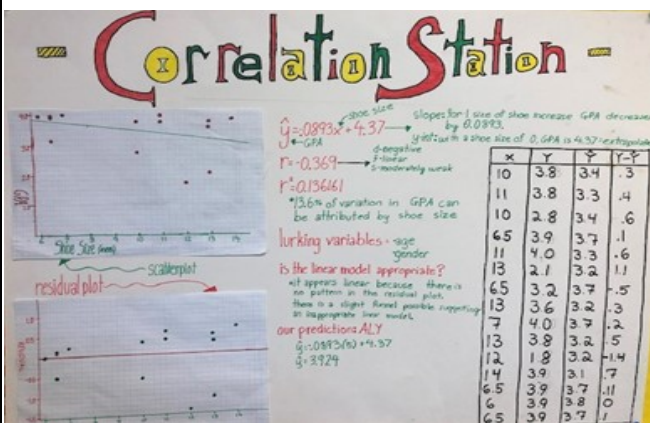 Correlation Station
ŷ=.0893x+4.37
shoe size
GPA
slope: for 1 size of shoe increase GPA decreases
by 0.0893.
y-int: with a shoe size of 0, GPA is 4.37=extrapolate
r=-0.369
d-negative
f-linear
s-moderately weak
r²=0.136161
*13.6% of variation in GPA can
be attributed by shoe size
lurking variables - age
gender
is the linear model appropriate?
it appears linear because there is
no pattern in the residual plot.
there is a slight funnel possible suggesting
an inappropriate linear model.
our predictions: ALY
ŷ=-.0893(5)+4.37
ŷ=3.924
GPA
Shoe Size
scatterplot
residual plot
x Y Ŷ Y-Ŷ
10 3.8 3.4 .3
11 3.8 3.3 .4
10 2.8 3.4 .6
6.5 3.9 3.7 .1
11 4.0 3.3 .6
13 2.1 3.2 1.1
6.5 3.2 3.7 -.5
13 3.6 3.2 .3
7 4.0 3.7 .2
13 3.8 3.2 .5
12 1.8 3.2 -1.4
14 3.9 3.1 .7
6.5 3.9 3.7 .11
6 3.9 3.8 0
6.5 3.9 3.7 .1